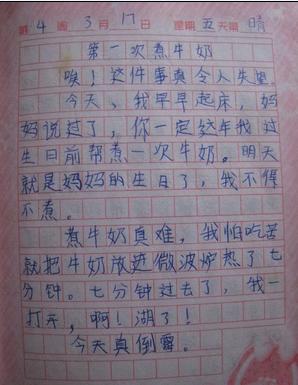 第4周3月17日 星期五 天气晴
第一次煮牛奶
唉！这件事真令人失望。
今天、我早早起床，妈
妈说过了，你一定经在我过
生日前帮煮一次牛奶。明天
就是妈妈的生日了，我不得
不煮。
煮牛奶真难，我怕吃苦
就把牛奶放进微波炉热了七
分钟。七分钟过去了，我一
打开，啊！湖了！
今天真倒霉。